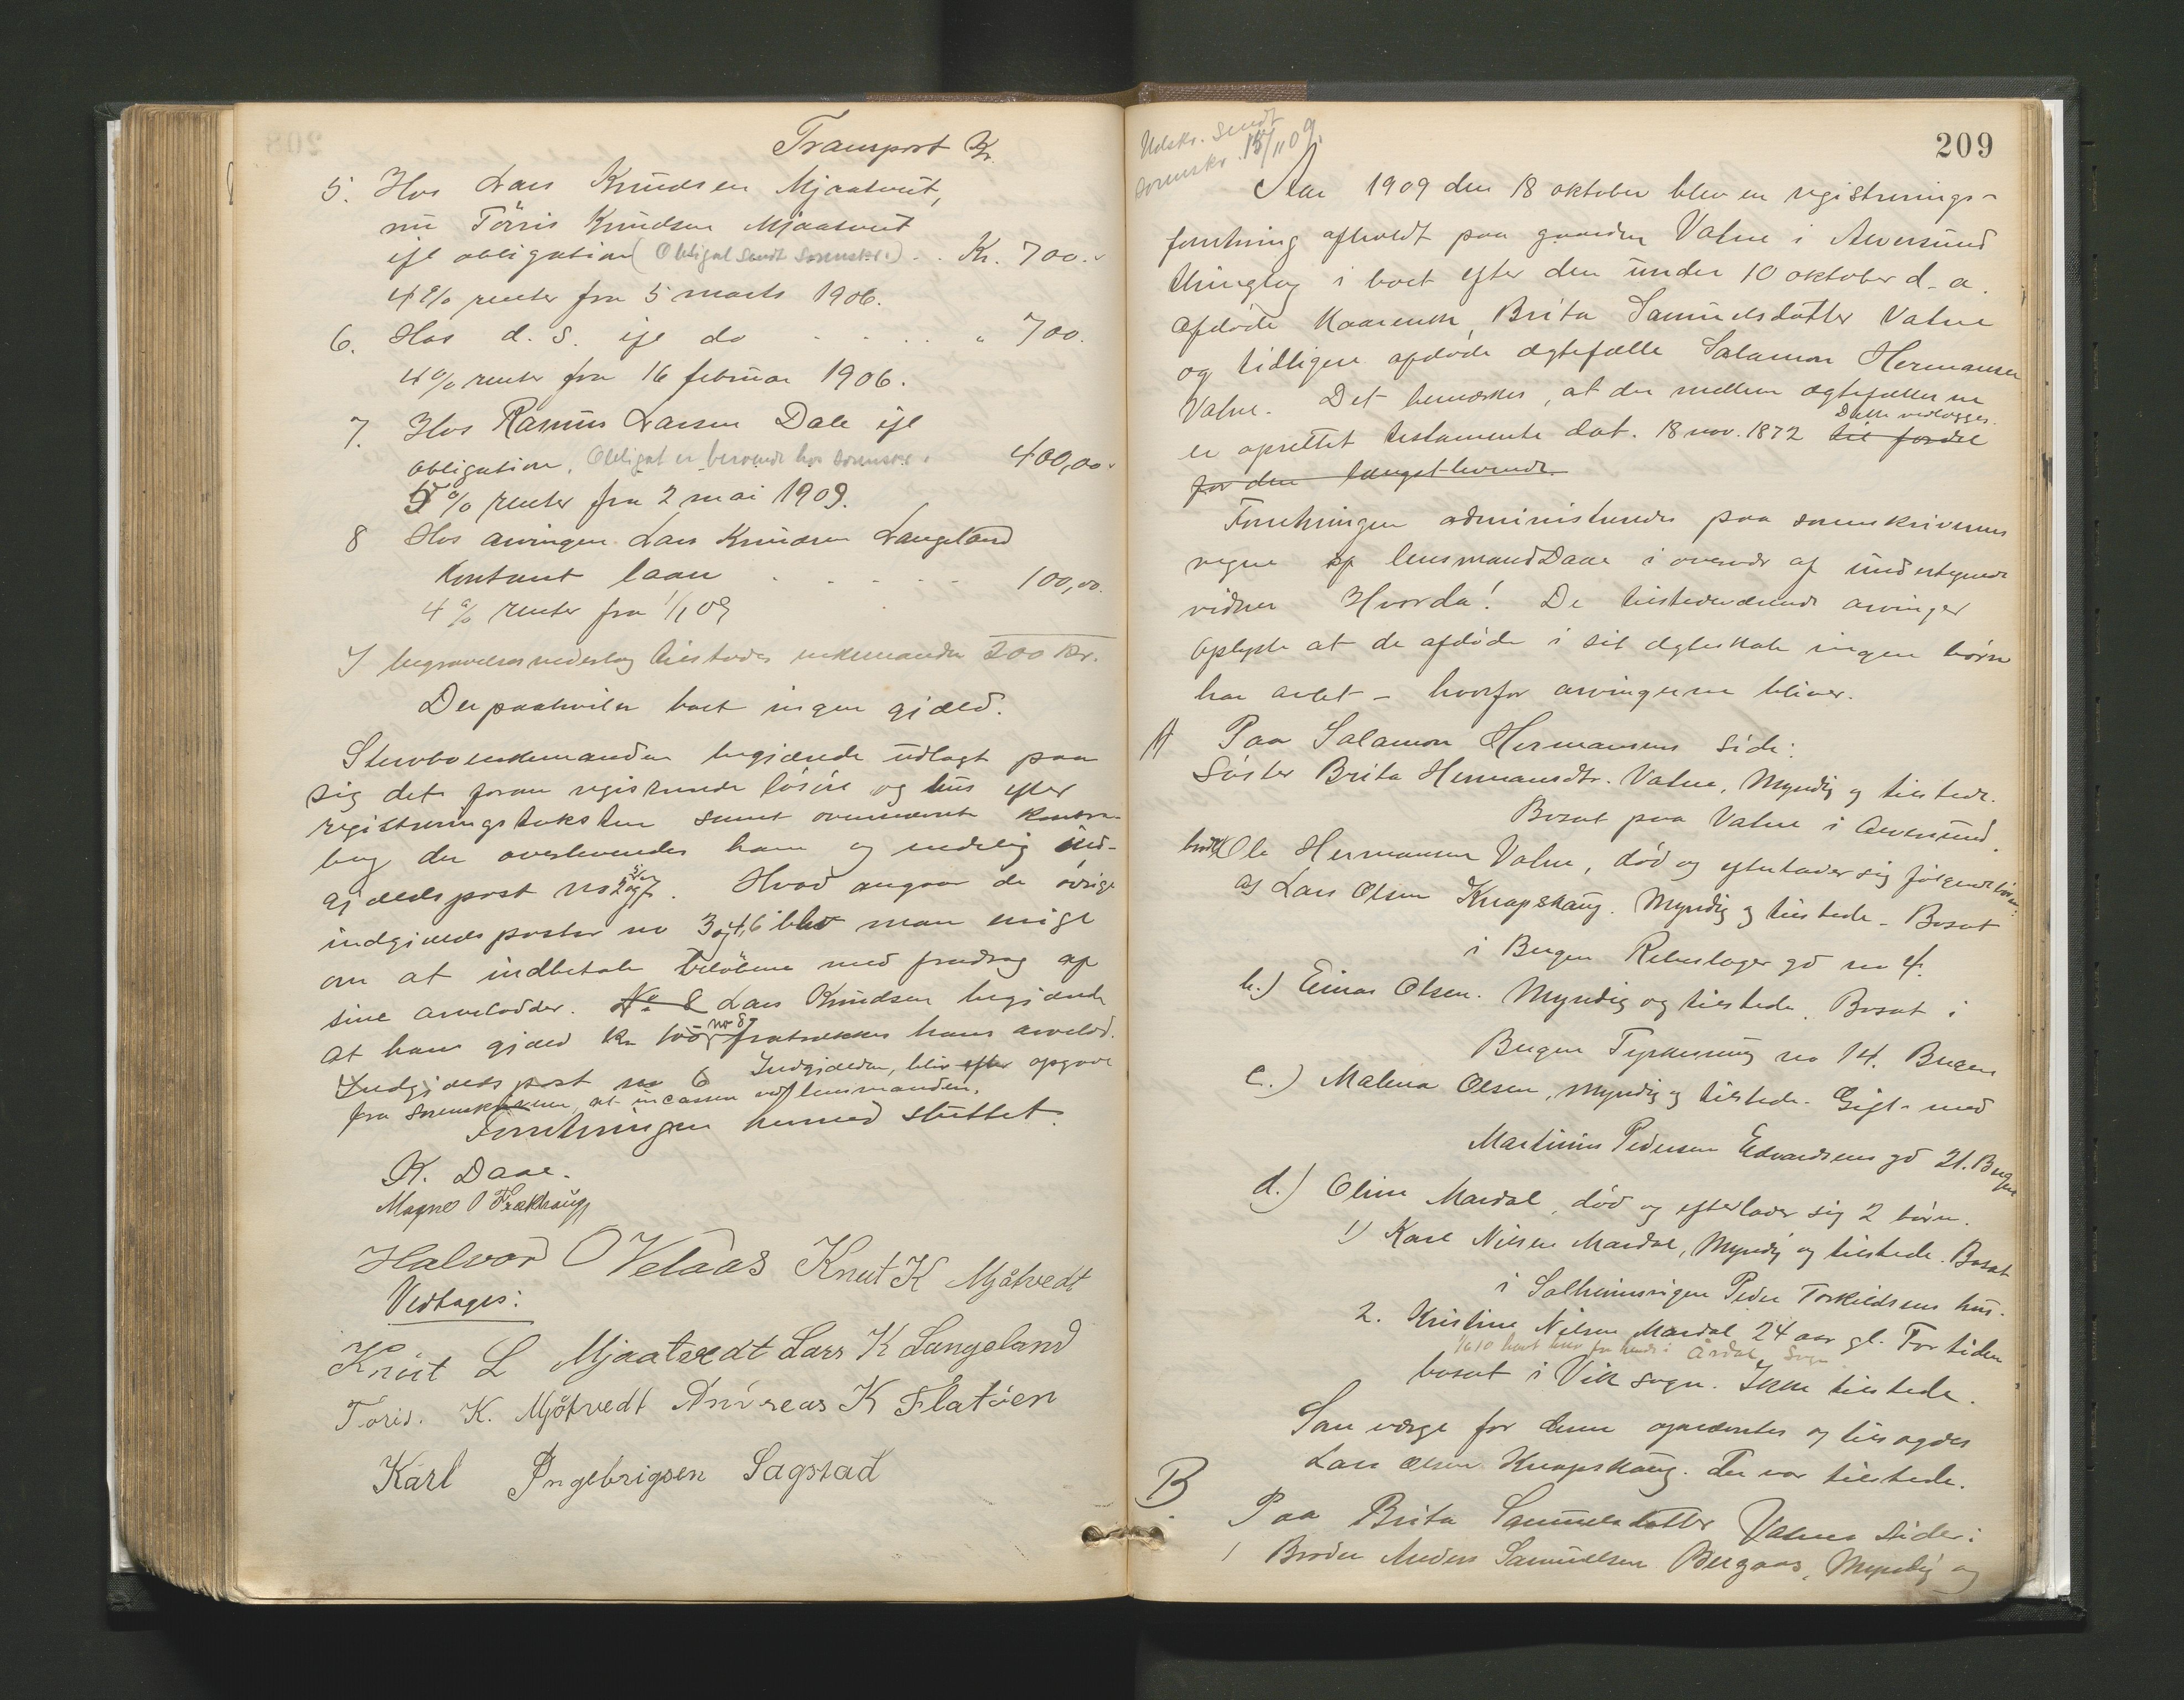 Transport Kr.
5. Hos Lars Knudsen Mjaatveit,
nu Törris Knudsen Mjaatveit
ifl obligation (Obligat sendt sorenskr.) . . Kr. 700.
4% renter fra 5 marts 1906.
6. Hos d. s. ifl do . . . . " 700.
4% renter fra 16 februar 1906.
7. Hos Rasmus Larsen Dale ifl
obligation. Obligat er beroende hos sorenskr. 400,00.
5% renter fra 2 mai 1909.
8 Hos arvingen Lars Knudsen Langeland
kontant laan . . . . . 100,00.
4% renter fra 1/1 09
I begravelses vederlag tilstodes enkemanden 200 kr.
Der paahviler boet ingen gjæld.
Stervboenkemanden begjærede udlagt paa
sig det foran registrerede lösöre og hus efter
registreringstaksten samt ovennævnte
der overlevendes ham og endelig ind-
gjældspost no 2 og 7. Hvad angaar de övrige
indgjælds poster no 3 og 4, 6 blev man enige
om at indbetale belöbene med fradrag af
sine arvelodder. No 8 Lars Knudsen begjærede
at hans gjæld kr 100 no 8 fratrækkes hans arvelod.
Indgjælds post no 6 Indgjælden, blir efter opgave
fra sorenskriveren at incassere ved lensmanden.
Forretningen hermed sluttet.
K. Daae.
Magne O Frækhaug
Halvor O Velaas Knut K Mjåtvedt
Vedtages:
Knut L Mjaatvedt Lars K Langeland
Töris. K. Mjåtvedt Andreas K Flatöen
Karl Ingebrigsen Sagstad
209
Udskr. sendt
sorenskr. 15/11 09.
Aar 1909 den 18 oktober blev en registrerings-
forretning afholdt paa gaarden Vatne i Alversund
thinglag i boet efter den under 10 oktober d. a.
afdöde kaarenke, Brita Samuelsdatter Vatne
og tidligere afdöde ægtefælle Salamon Hermansen
Vatne. Det bemærkes, at der mellem ægtefællerne
er oprettet testamente dat. 18 nov. 1872 Dette vedlægges. til fordel
for den længstlevende.
Forretningen administreredes paa sorenskriverens
vegne af lensmand Daae i overvær af undertegnede
vidner Hvorda! De tilstedeværende arvinger
oplyste at de afdöde i sit ægteskab ingen börn
har avlet - hvorfor arvingerne bliver.
A Paa Salamon Hermansens side:
Söster Brita Hermansdtr. Vatne, Myndig og tilstede.
Bosat paa Vatne i Alversund.
broder Ole Hermansen Vatne, död og efterlader sig fölgende börn:
a) Lars Olsen Knapskaug. Myndig og tilstede - Bosat
i Bergen Rebslager gd no 4.
b.) Einar Olsen. Myndig og tilstede. Bosat i
Bergen no 14. Bergen
c.) Malena Olsen, myndig og tilstede. Gift med
Martinius Pedersen Edvardsens gd 21. Bergen
d.) Oline Mardal, död og efterlader sig 2 börn.
1) Karl Nilsen Mardal, Myndig og tilstede. Bosat
i Solheimsvigen Peder Torkildsens hus.
2. Kristine Nilsen Mardal 24 aar gl. For tiden
Årdal Sogn
bosat i Vik sogn. Ikke tilstede.
Som værge for denne opnævntes og tilsagdes
Lars Olsen Knapskaug. Der var tilstede.
B Paa Brita Samuelsdatter Vatnes side:
1 Broder Anders Samuelsen Bergaas, Myndig og